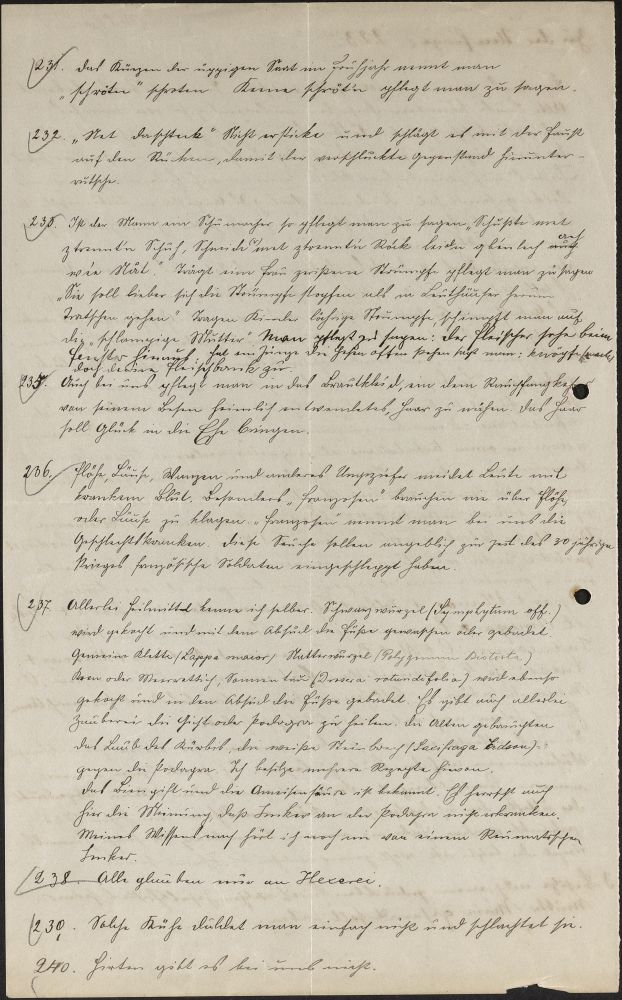 231. Das Kürzen der üppigen Saat im Frühjahr nennt man
„schröten" schroten. Keine schröt'n pflegt man zu sagen.
232. „Net daschteck" Nicht ersticke und schlägt es mit der Faust
auf den Rücken, damit der verschluckte Gegenstand hinunter-
rutsche.
233. Ist der Mann ein Schumacher so pflegt man zu sagen „Schuste met
ztrennt'n Schuh, Schneider met ztrennt'n Röck leid'n
wie Nåt." Trägt eine Frau zerissene Strümpfe pflegt man zu sagen
„Sie soll lieber sich die Strümpfe stopfen als in Leuthäuser herum
tratschen gehen" Tragen Kinder löchrige Strümpfe schimpft man auf
die „schlampige Mutter". Man pflegt zu sagen: der Fleischer sehe beim
Fenster hinaus; hat ein Junge die Hosen offen stehen sagt man: knöpfe
doch deine Fleischbank zu.
235. Auch bei uns pflegt man in das Brautkleid, ein dem Rauchfangkehrer
von seinem Besen heimlich entwendetes, Haar zu nähen. Das Haar
soll Glück in die Ehe bringen.
236. Flöhe, Läuse, Wanzen und anderes Ungeziefer meidet Leute mit
krankem Blut. Besonders „Franzosen" brauchen nie über Flöhe,
oder Läuse zu klagen. „Franzosen" nennt man bei uns die
Geschlechtskranken. Diese Seuche sollen angeblich zur Zeit des 30 jährigen
Krieges französische Soldaten eingeschleppt haben.
237. Allerlei Heilmittel kenne ich selber. Schwarzwurzel (Symphytum off.)
wird gekocht und mit dem Absud die Füße gewaschen oder gebadet.
Gemeine Klette (Lappa maior) Natterwurzel (Polygonum Bistorta,)
Kren oder Meerrettich, Sonnentau (Drosera rotundifolia) wird ebenso
gekocht und in den Absud die Füße gebadet. Es gibt auch allerlei
Zauberei die Gicht oder Podagra zu heilen. Die Alten gebrauchten
das Laub des Kürbis, die weiße Steinbrech
gegen die Podagra. Ich besitze mehrere Rezepte hievon.
Das Bienengift und die Ameisensäure ist bekannt. Es herrscht auch
hier die Meinung, daß Imker an der Podagra nicht erkranken.
Meines Wissens nach hört ich noch nie von einem Reumatischen
Imker.
238. Alle glaubten nur an Hexerei.
239. Solche Kühe duldet man einfach nicht und schlachtet sie.
240. Hirten gibt es bei uns nicht.